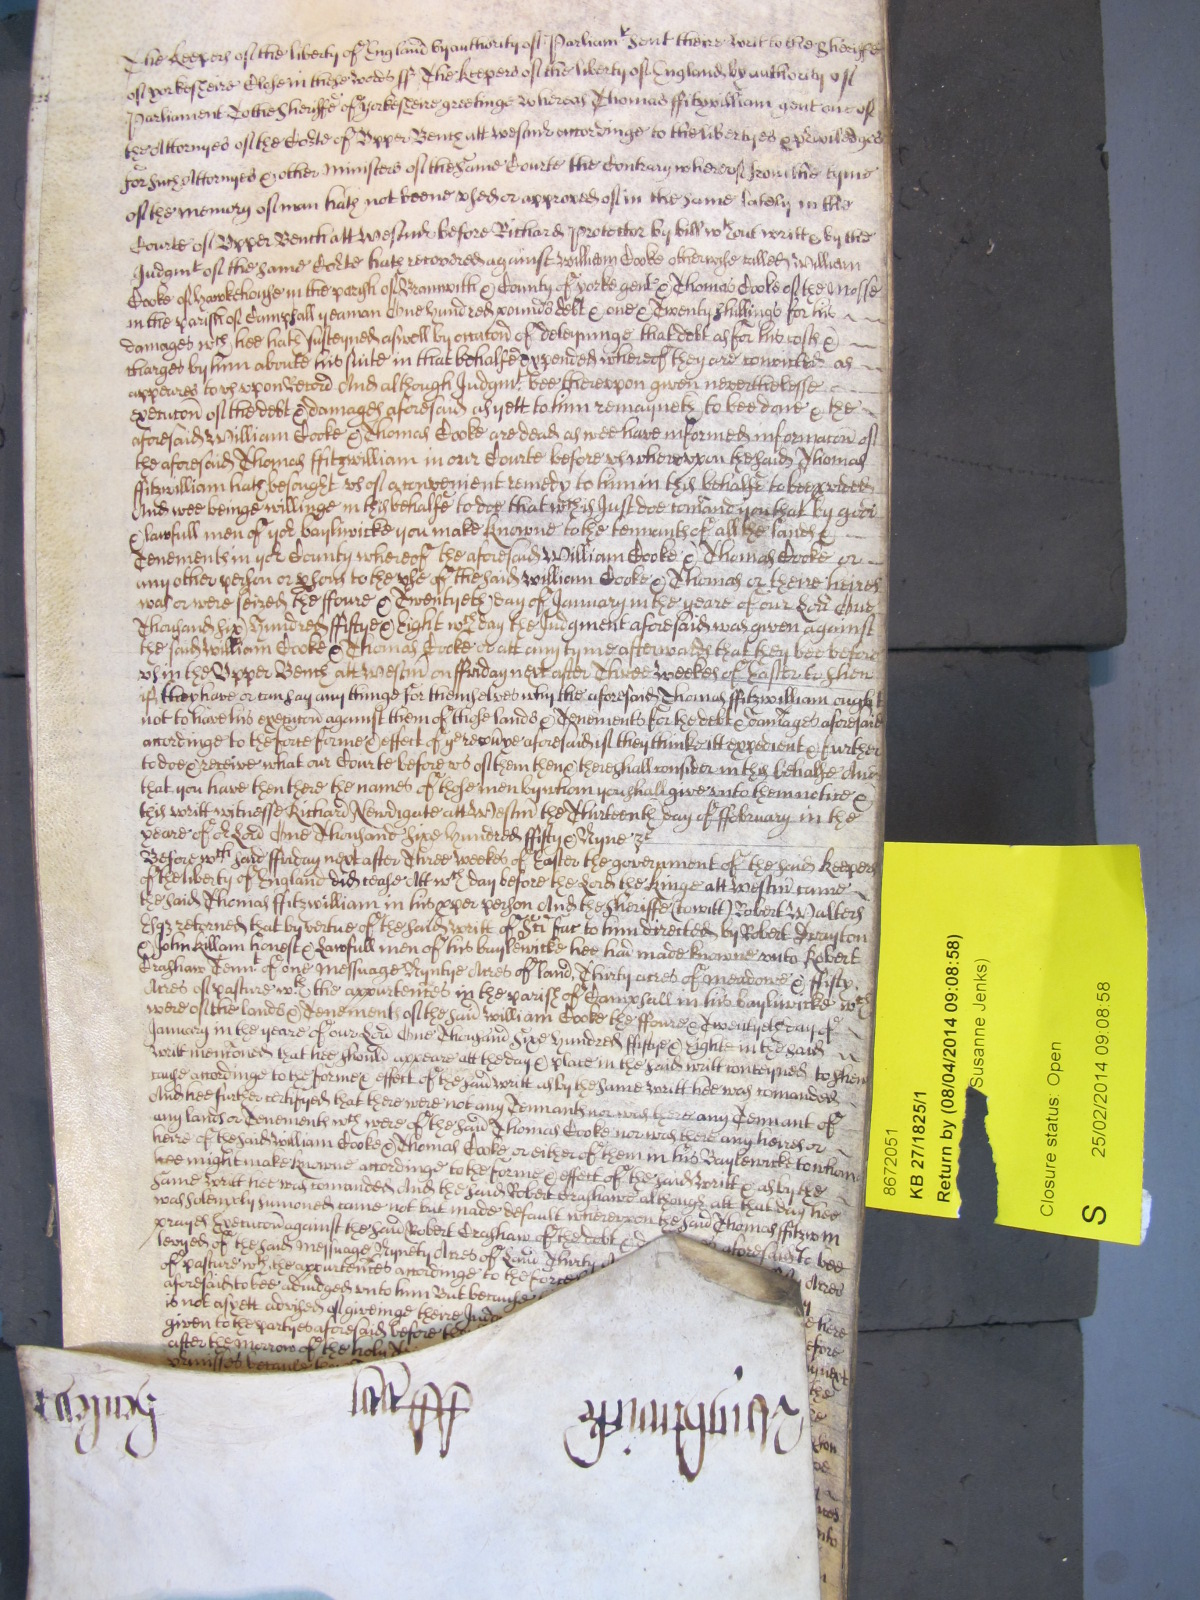 The Keepers of the liberty of England by authority of Parliamt sent theire writ to the Sheriffe
of Yorkesheire Close in these words ss The Keepers of the liberty of England by authority of
Parliament To the Sheriffe of Yorkesheire greetinge Whereas Thomas ffitzwilliam gent one of
the Attornyes of the Corte of Upper Bench att Westmr accordinge to the libertyes & priviledges
for such Attornyes & other Ministers of the same Courte the Contrary whereof from the tyme
of the memory of man hath not beene used or approved of in the same lately in the
Courte of Upper Bench att Westmr before Richard Protector by bill wthout writt & by the
Judgmt of the same Corte hath recovered against William Cooke otherwise called William
Cooke of Hawkehouse in the parish of Bramwith & County of Yorke gent & Thomas Cooke of the Mosse
in the parish of Campsall yeoman One hundred pounds debt & one & Twenty shillings for his
damages wch hee hath susteyned aswell by occacon of deteyninge that debt as for his costs &
charges by him aboute his suite in that behalfe expended whereof they are convicted as
appeares to us upon Record And although Judgmt bee thereupon given neverthelesse
execucon of the debt & damages aforesaid as yett to him remayneth to bee done & the
aforesaid William Cooke & Thomas Cooke are dead as wee have informed informacon of
the aforesaid Thomas ffitzwilliam in our Courte before us whereupon the said Thomas
ffitzwilliam hath besought us of a convenient remedy to him in this behalfe to bee provided
And wee beinge willinge in this behalfe to doe that wch is Just doe comand you that by good
& lawfull men of yor bayliwicke you make knowne to the tennants of all the lands &
Tenements in yor County whereof the aforesaid William Cooke & Thomas Cooke or
any other person or persons to the use of the said William Cooke & Thomas or theire heires
was or were seized the ffoure & Twentyeth day of January in the yeare of our Lord One
Thousand six hundred ffiftye & Eight wch day the Judgment aforesaid was given against
the said William Cooke & Thomas Cooke or att any tyme afterwards that they bee before
us in the Upper Bench att Westmr on ffriday next after Three weekes of Easter to shew
if they have or can say any thinge for themselves why the aforesaid Thomas ffitzwilliam ought
not to have his execucon against them of those lands & Tenements for the debt & damages aforesaid
accordinge to the force forme & effect of ye recovery aforesaid if they thinke itt expedient & further
to doe & receive what our Courte before us of them then & there shall consider in this behalfe And
that you have then there the names of those men by whom you shall give unto them notice &
this writt witnesse Richard Newdigate att Westmr the Thirteenth day of ffebruary in the
yeare of or Lord One Thousand Sixe hundred ffifty & Nyne
Before wch said ffriday next after Three weekes of Easter the government of the said Keepers
of the liberty of England did cease Att wch day before the Lord the Kinge att Westmr came
the said Thomas ffitzwilliam in his pper person And the Sheriffe (to witt) Robert Walters
Esqr returned that by vertue of the said write of Sci fac to him directed by Robert Drayton
& John Killam honest & Lawfull men of his bayliwicke hee had made knowne unto Robert
Crashaw Tennt of one Messuage Nyntye Acres of land, Thirty acres of meadowe & ffifty
Acres of pasture wth the appurtences in the parish of Campsall in his bayliwicke wch
were of the lands & Tenements of the said William Cooke the ffoure & Twentyeth day of
January in the yeare of our Lord One Thousand Sixe hundred ffiftye & eighte in the said
writt mencioned that hee should appeare att the day & place in the said writt conteyned to shew
cause accordinge to the forme & effect of the said writt as by the same writt hee was comanded
And hee further certifyed that there were not any Tennants nor was there any Tennant of
any lands or Tenements wch were of the said Thomas Cooke nor was there any heires or
heire of the said William Cooke & Thomas Cooke or either of them in his Baylewicke to whom
hee might make knowne accordinge to the forme & effect of the said writt & as by the
same writt hee was comanded And the said Robert Crashawe although att that day hee
was solemnly sumoned came not but made default whereupon the said Thomas ffitzwm
prayed Execucon against the said Robert Crashaw of the debt & aforesaid to bee
levyed of the said Messuage Nynety Acres of Land Thirty Acres
of pasture wth the appurtences accordinge to the force
aforesaid to bee adiudged unto him But because
is not as yett advised of giveinge theire Judg
given to the partyes aforesaid before the
after the Morrow of the holy
8672051
KB 27/1825/1
Return by (08/04/2014 09:08:58)
Susanne Jenks)
Closure status: Open
S
25/02/2014 09:08:58